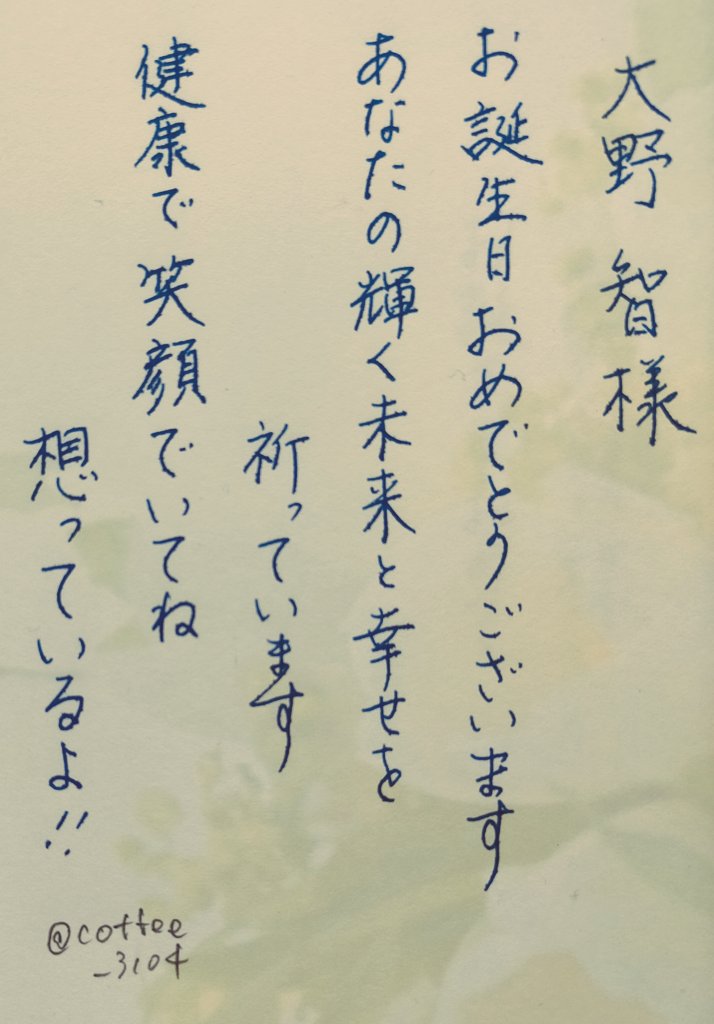 大野 智様
お誕生日おめでとうございます
あなたの輝く未来と幸せを
祈っています
健康で笑顔でいてね
想っているよ!!
@coffee
_3104